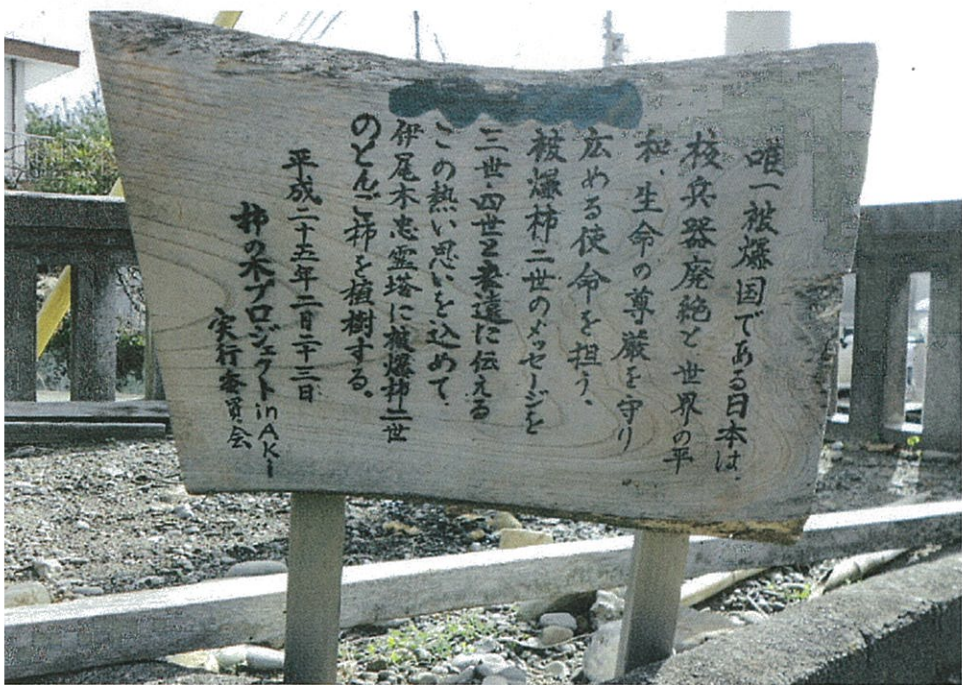 唯一被爆国である日本は、
核兵器廃絶と世界の平
和、生命の尊厳を守り
広める使命を担う。
被爆柿二世のメッセージを
三世・四世と永遠に伝える
この熱い思いを込めて、
伊尾木忠霊塔に被爆柿二世
のとんご柿を植樹する。
平成二十五年二月二十三日
柿の木プロジェクトinAKi
実行委員会